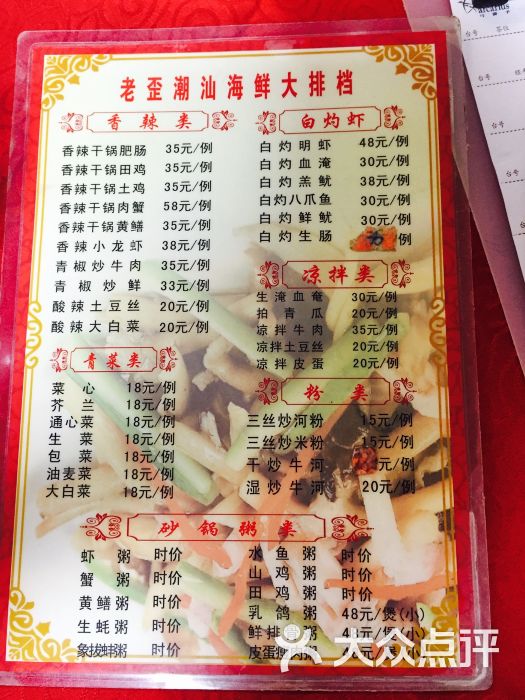 老歪潮汕海鲜大排档
香辣类
香辣干锅肥肠 35元/例
香辣干锅田鸡 35元/例
香辣干锅土鸡 35元/例
香辣干锅肉蟹 58元/例
香辣干锅黄鳝 35元/例
香辣小龙虾 38元/例
青椒炒牛肉 35元/例
青椒炒鲜 33元/例
酸辣土豆丝 20元/例
酸辣大白菜 20元/例
青菜类
菜心 18元/例
芥兰 18元/例
通心菜 18元/例
生菜 18元/例
包菜 18元/例
油麦菜 18元/例
大白菜 18元/例
白灼虾
白灼明虾 48元/例
白灼血淹 30元/例
白灼羔鱿 38元/例
白灼八爪鱼 30元/例
白灼鲜鱿 30元/例
白灼生肠 元/例
凉拌类
生淹血奄 30元/例
拍青瓜 20元/例
凉拌牛肉 35元/例
凉拌土豆丝 20元/例
凉拌皮蛋 20元/例
粉类
三丝炒河粉 15元/例
三丝炒米粉 15元/例
干炒牛河 元/例
湿炒牛河 20元/例
砂锅粥类
虾粥 时价
蟹粥 时价
黄鳝粥 时价
生蚝粥 时价
象拔蚌粥 时价
水鱼粥 时价
山鸡粥 时价
田鸡粥 时价
乳鸽粥 48元/煲(小)
鲜排粥 48元/煲(小)
皮蛋瘦肉粥 元/煲(小)
大众点评
台号
台号
台号